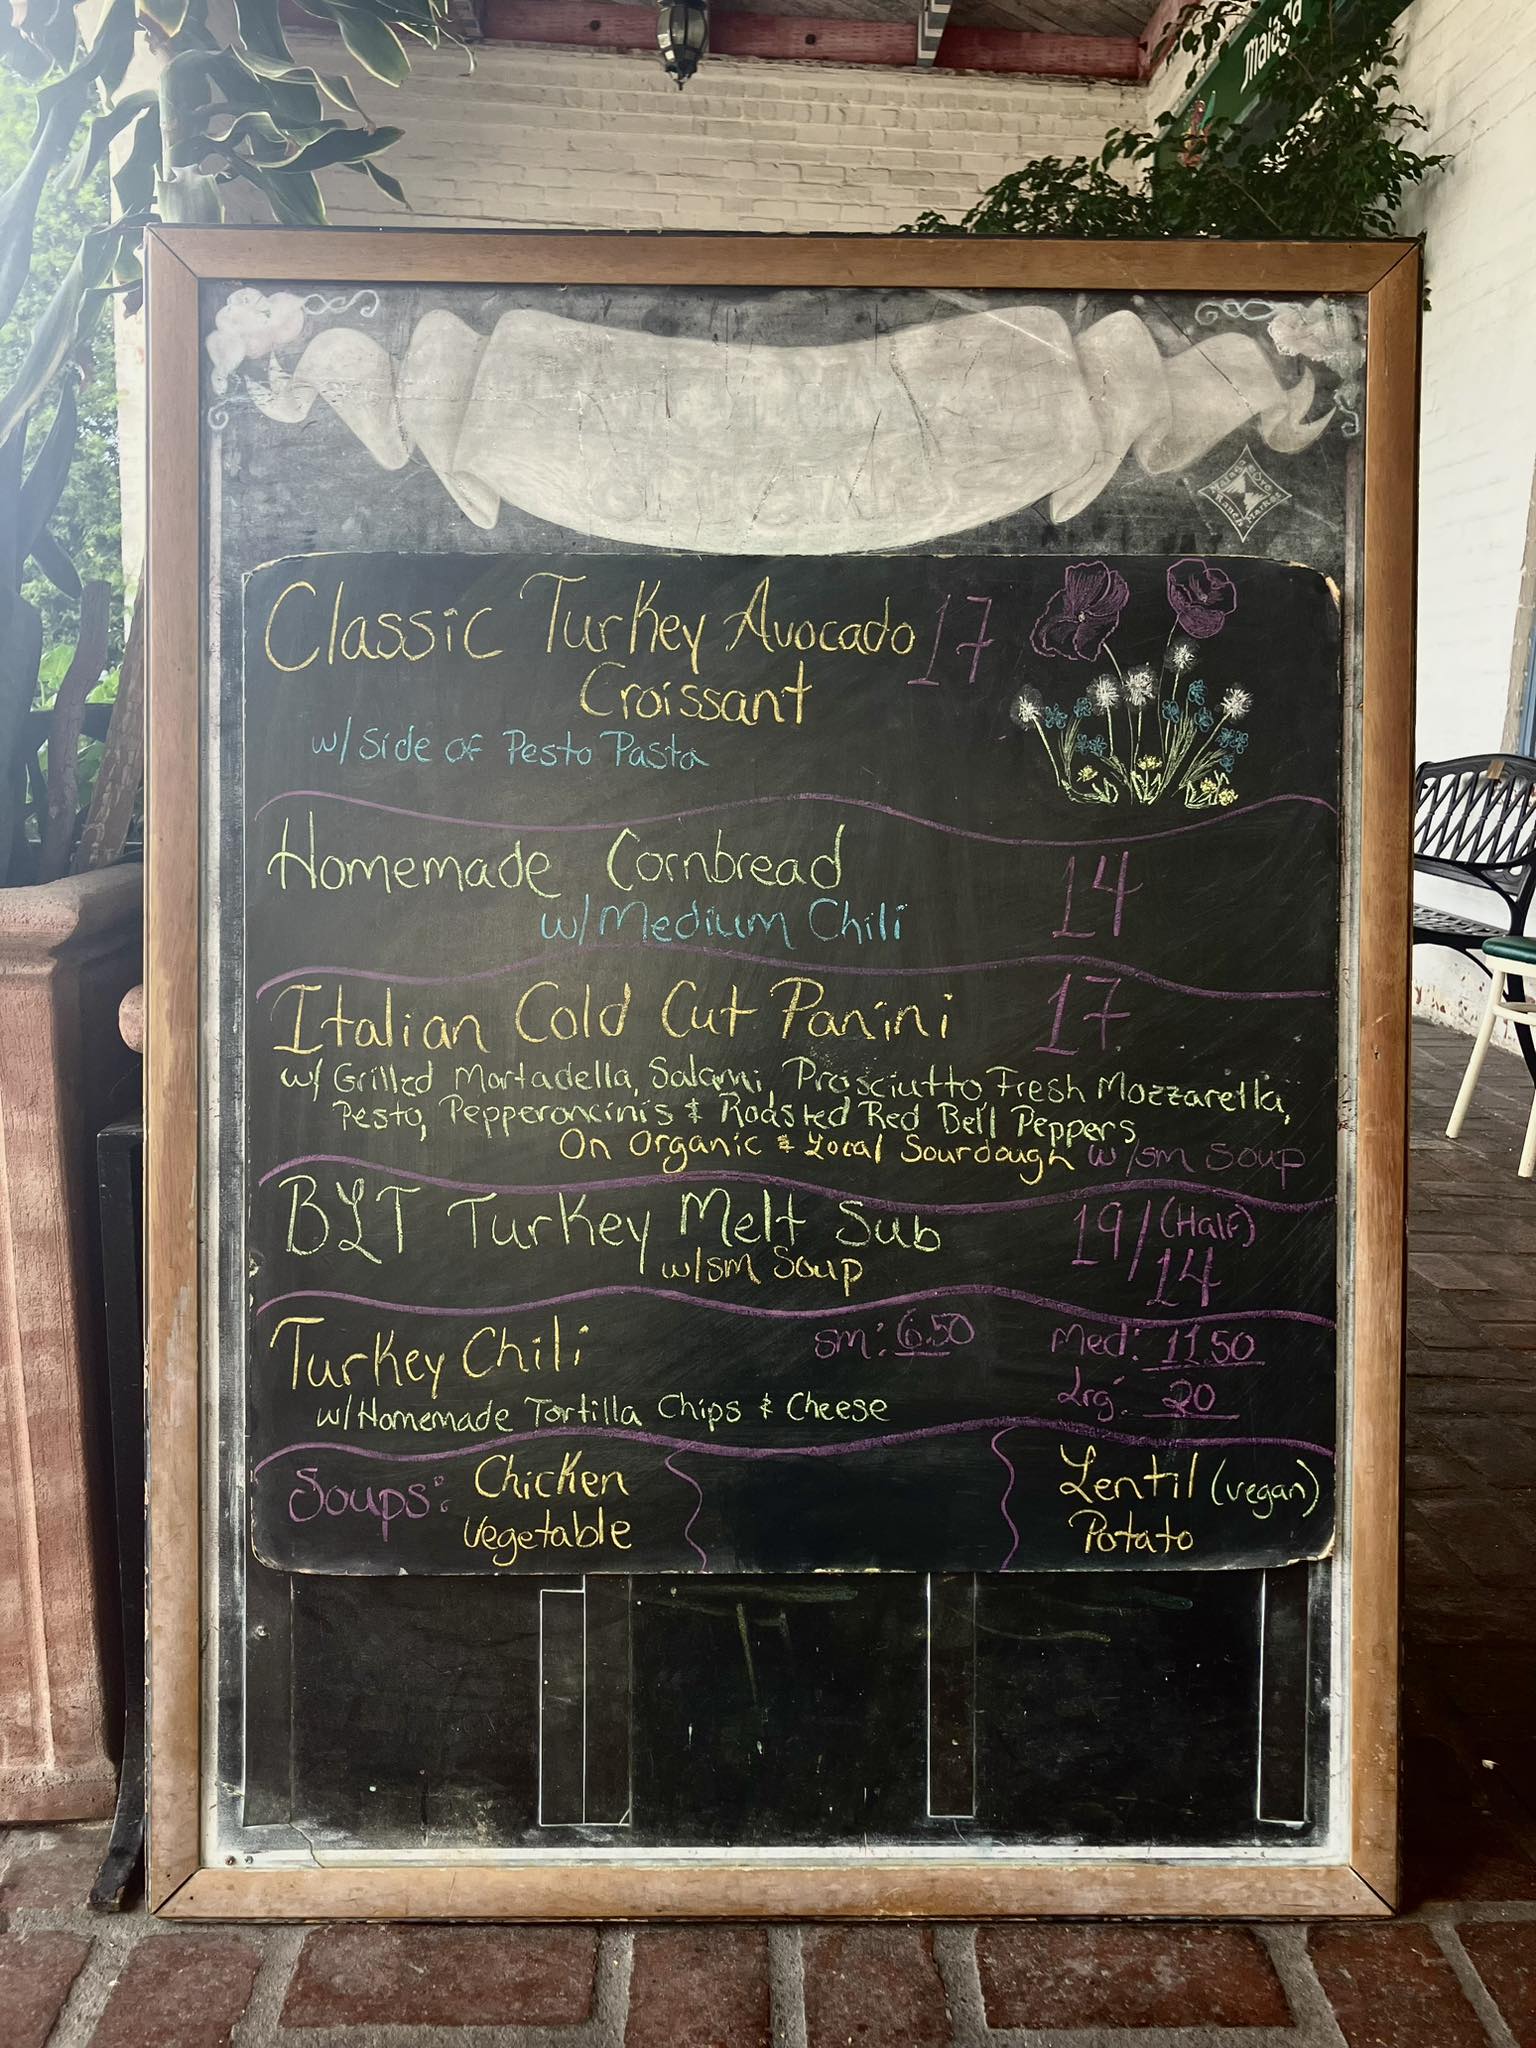 Maiago
Malaga
Cove
Ranch
Market
Classic Turkey Avocado 17
Croissant
w/ side of Pesto Pasta
Homemade Cornbread 14
w/ Medium Chili
Italian Cold Cut Panini 17
w/ Grilled Mortadella, Salami, Prosciutto, Fresh Mozzarella,
Pesto, Pepperoncini's & Roasted Red Bell Peppers
On Organic & Local Sourdough w/sm Soup
BLT Turkey Melt Sub 19/(Half)
14
w/sm Soup
Turkey Chili sm: 6.50 Med: 11.50
Lrg: 20
w/Homemade Tortilla Chips & Cheese
Soups: Chicken
Vegetable
Lentil (vegan)
Potato